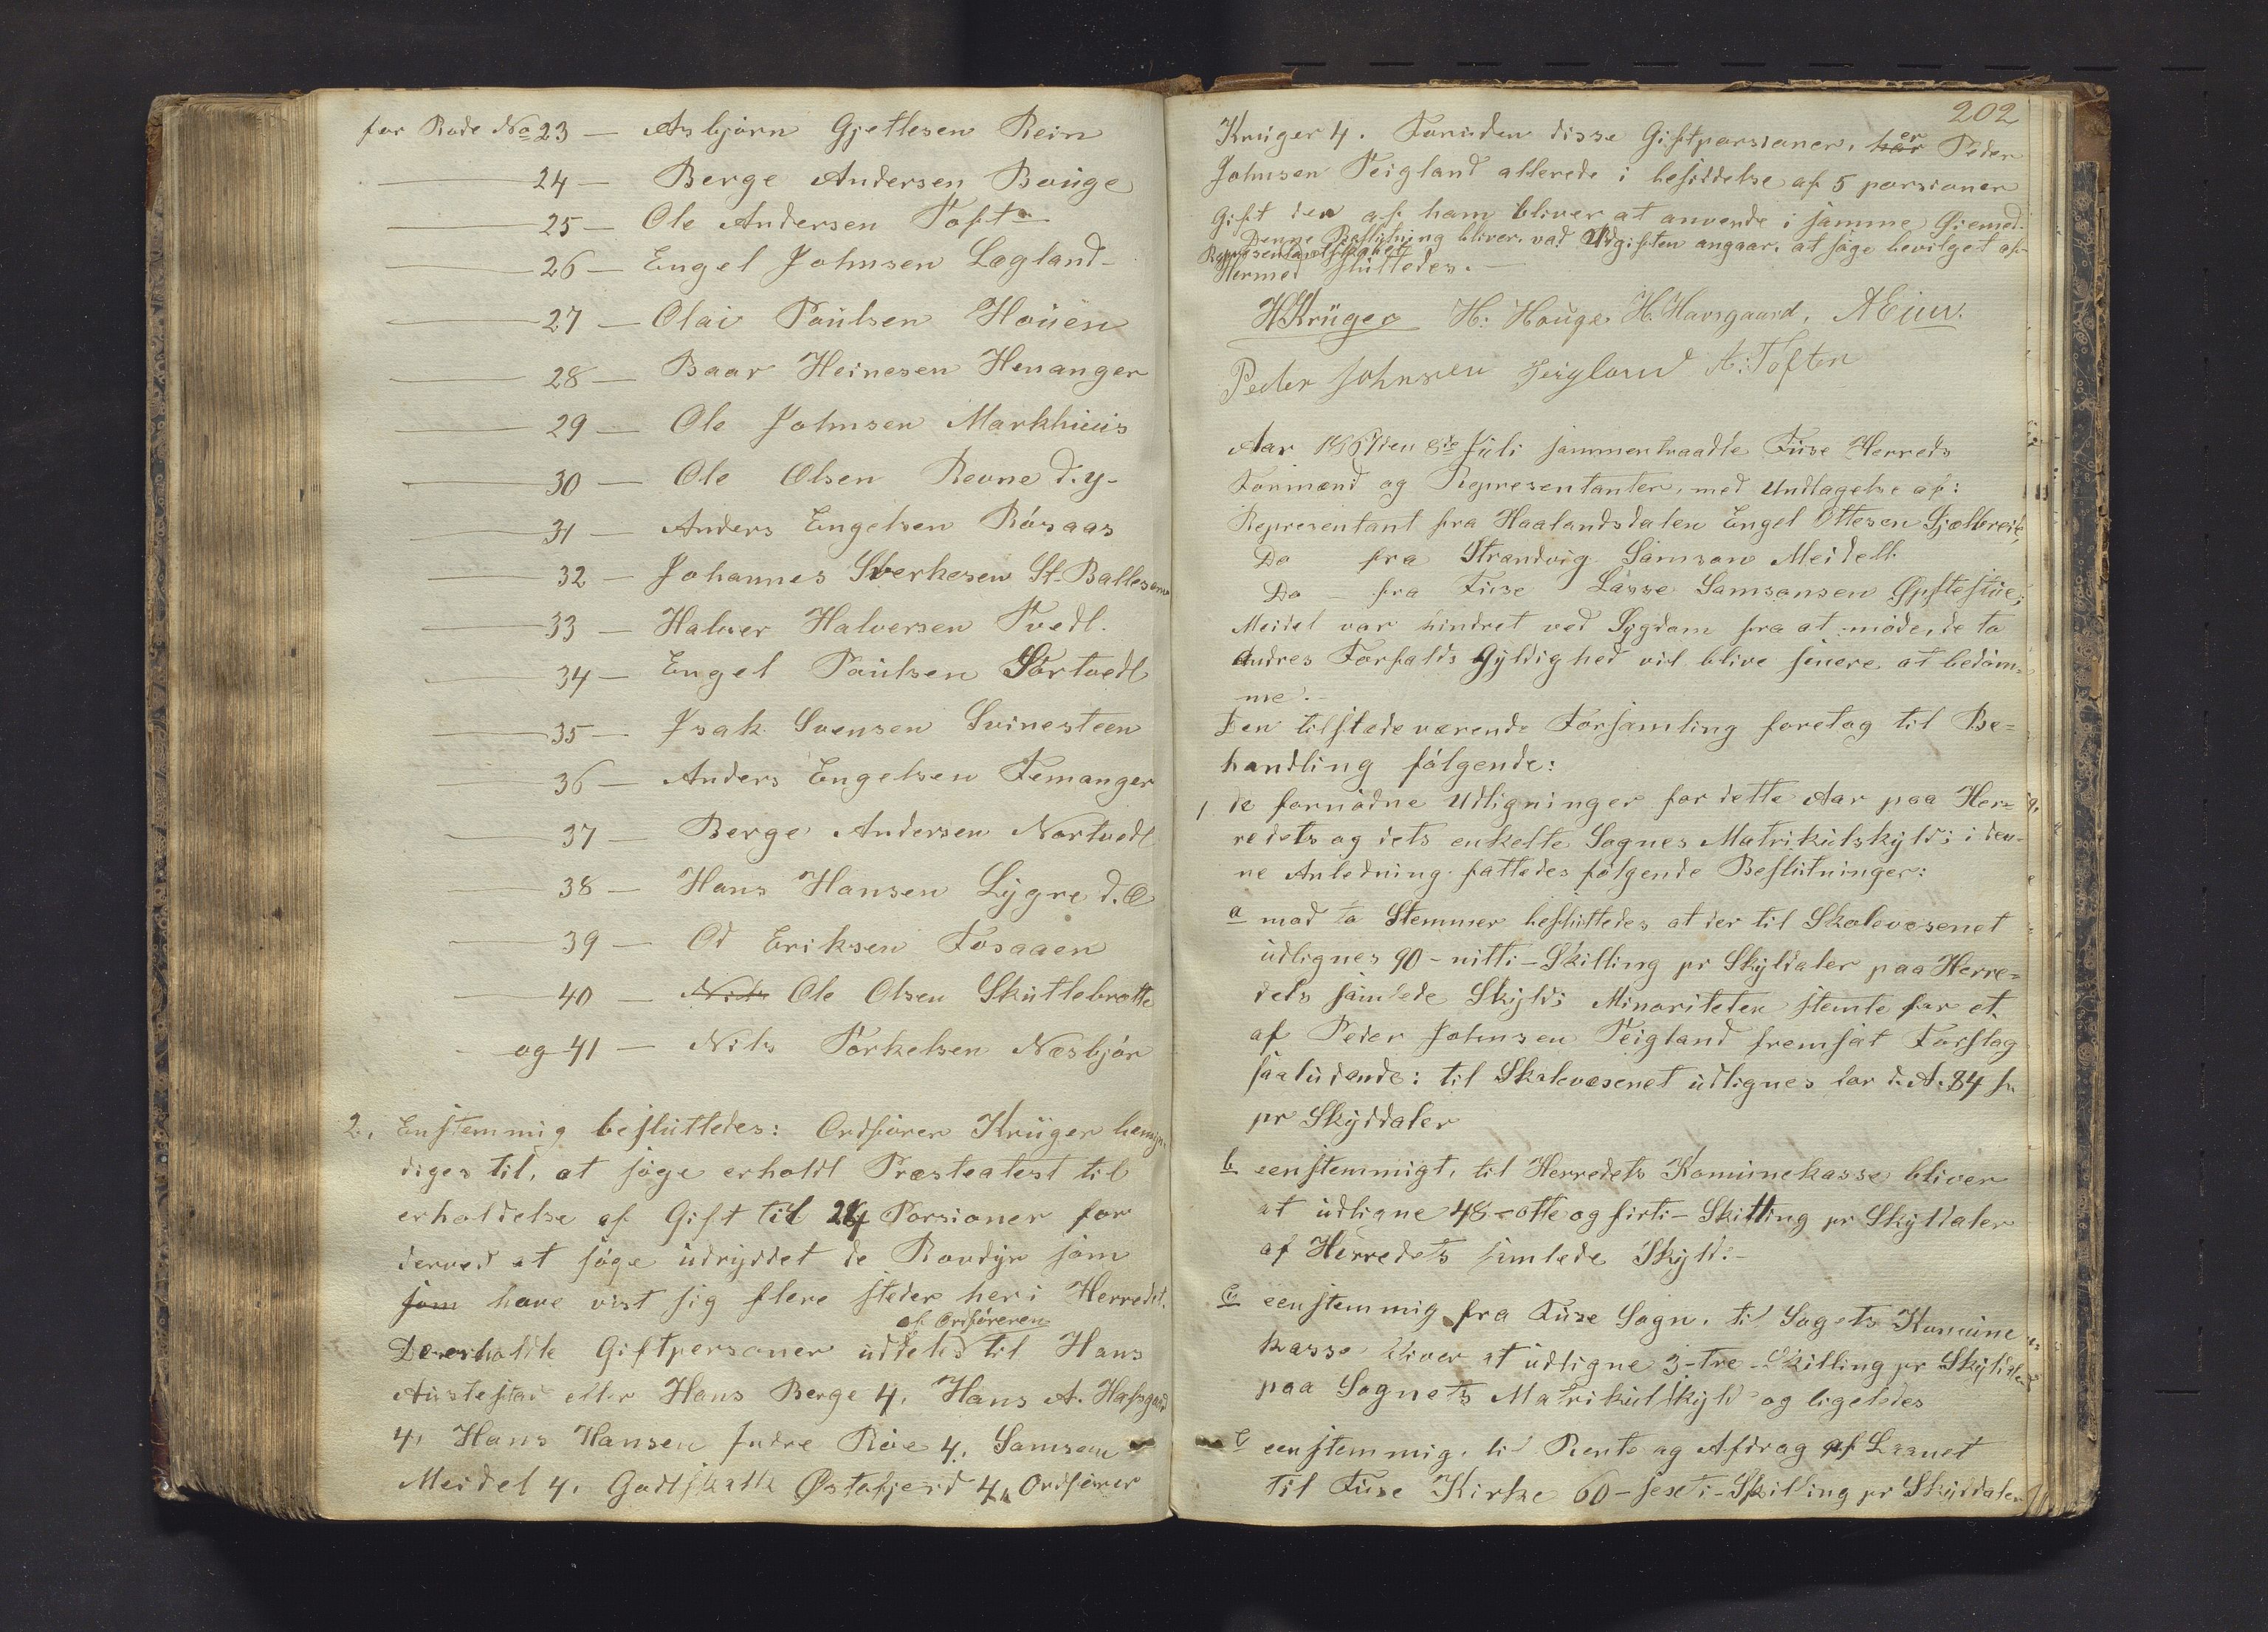 for Rode No 23 — Asbjørn Gjetlesen Rein
— 24 — Berge Andersen Bouge
— 25 — Ole Andersen Tofte
— 26 — Engel Johnsen Lagland
— 27 — Olai Poulsen Houen
— 28 — Baar Heinesen Henanger
— 29 — Ole Johnsen Markhuus
— 30 — Ole Olsen Revne d. y.
— 31 — Anders Engelsen Røsaas
— 32 — Johannes Sverkesen St. Ballesem
— 33 — Halver Halversen Tvedt.
— 34 — Engel Poulsen Sørtvedt
— 35 — Isak Svensen Svinesteen
— 36 — Anders Engelsen Femanger
— 37 — Berge Andersen Nortvedt
— 38 — Hans Hansen Lygre d. Æ
— 39 — Od Eriksen Fosaaen
— 40 — Nils Ole Olsen Skutlebrotte
og 41 — Nils Torkelsen Næsbjør
2, Enstemmig besluttedes: Ordfører Krüger bemyn
diges til, at søge erholdt Præsteatest til
erholdelse af Gift til 24 Porsioner for
derved at søge udryddet de Rovdyr som
som have vist sig flere steder her i Herredet.
af Ordføreren
De erholdte Giftpersoner uddeles til Hans
Austestad eller Hans Berge 4, Hans A. Hafsgaard
4, Hans Hansen Indre Røe 4, Samson
Meidel 4, Godtskalk Østefjord 4, Ordfører
202
Krüger 4. Foruden disse Giftporsioner, har er Peder
Johnsen Teigland allerede i besiddelse af 5 porsioner
Gift den af ham bliver at anvende i samme Øiemed.
Denne Beslutning bliver, vad Udgiften angaar, at søge bevilget af
Representantskabet
Hermed sluttedes. —
HKrüger H: Houge. H. Havsgaard,
Peder Johnsen Teigland A: Toften
Aar 1867 den 8de Juli sammentraadte Fuse Herreds
Formænd og Representanter, med Undtagelse af:
Representant fra Haalandsdalen Engel Ottesen Gjelbreid,
Do fra Strandvig Samson Meidell
Do — fra Fuse Lasse Samsonsen Øpstestue;
Meidel var hindret ved Sygdom fra at møde, de to
andres Forfalds Gyldighed vil blive senere at bedøm-
me. —
Den tilstedeværende Forsamling foretog til Be=
handling følgende:
1 de fornødne Udligninger for dette Aar paa Her=
redets og dets enkelte Sognes Matrikulskyld; i den-
ne Anledning fattedes følgende Beslutninger:
a mod to Stemmer besluttedes at der til Skolevæsenet
udlignes 90 – nitti – Skilling pr Skyldaler paa Herre=
dets samlede Skyld; Minoriteten stemte for et
af Peder Johnsen Teigland fremsat Forslag
saaludende: til Skolevæsenet udlignes for d. A. 84 sk
pr Skyldaler
b eenstemmigt, til Herredets Komunekasse bliver
at udligne 48 – otte og firti – Skilling pr Skyldaler
af Herredets samlede Skyld. —
c eenstemmig fra Fuse Sogn, til Sogets Komune
kasse bliver at udligne 3 – tre – Skilling pr Skyldaler
paa Sognets Matrikulskyld og ligeledes
eenstemmig, til Rente og Afdrag af Laanet
til Fuse Kirke 60 – sexti – Skilling pr Skyldaler